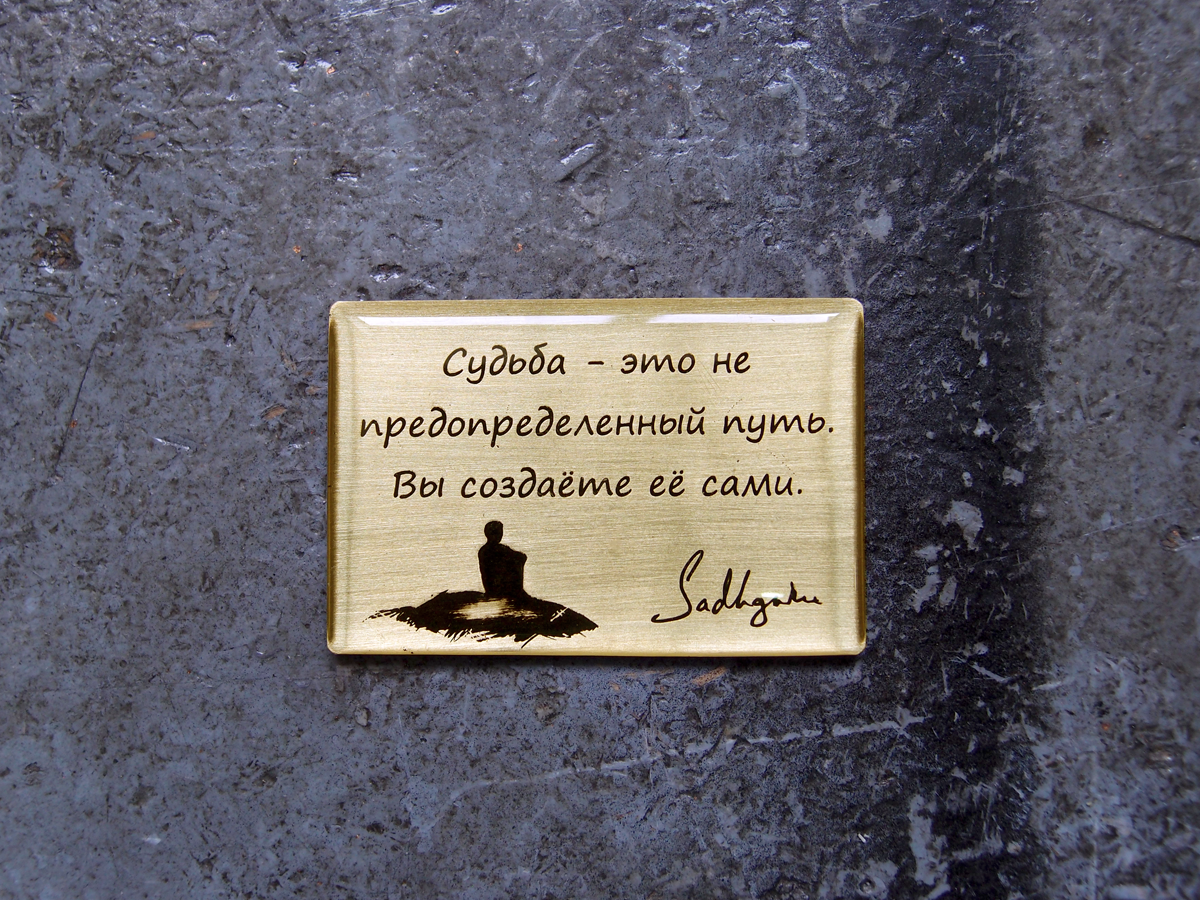 Судьба - это не
предопределенный путь.
Вы создаёте её сами.
Sadhguru